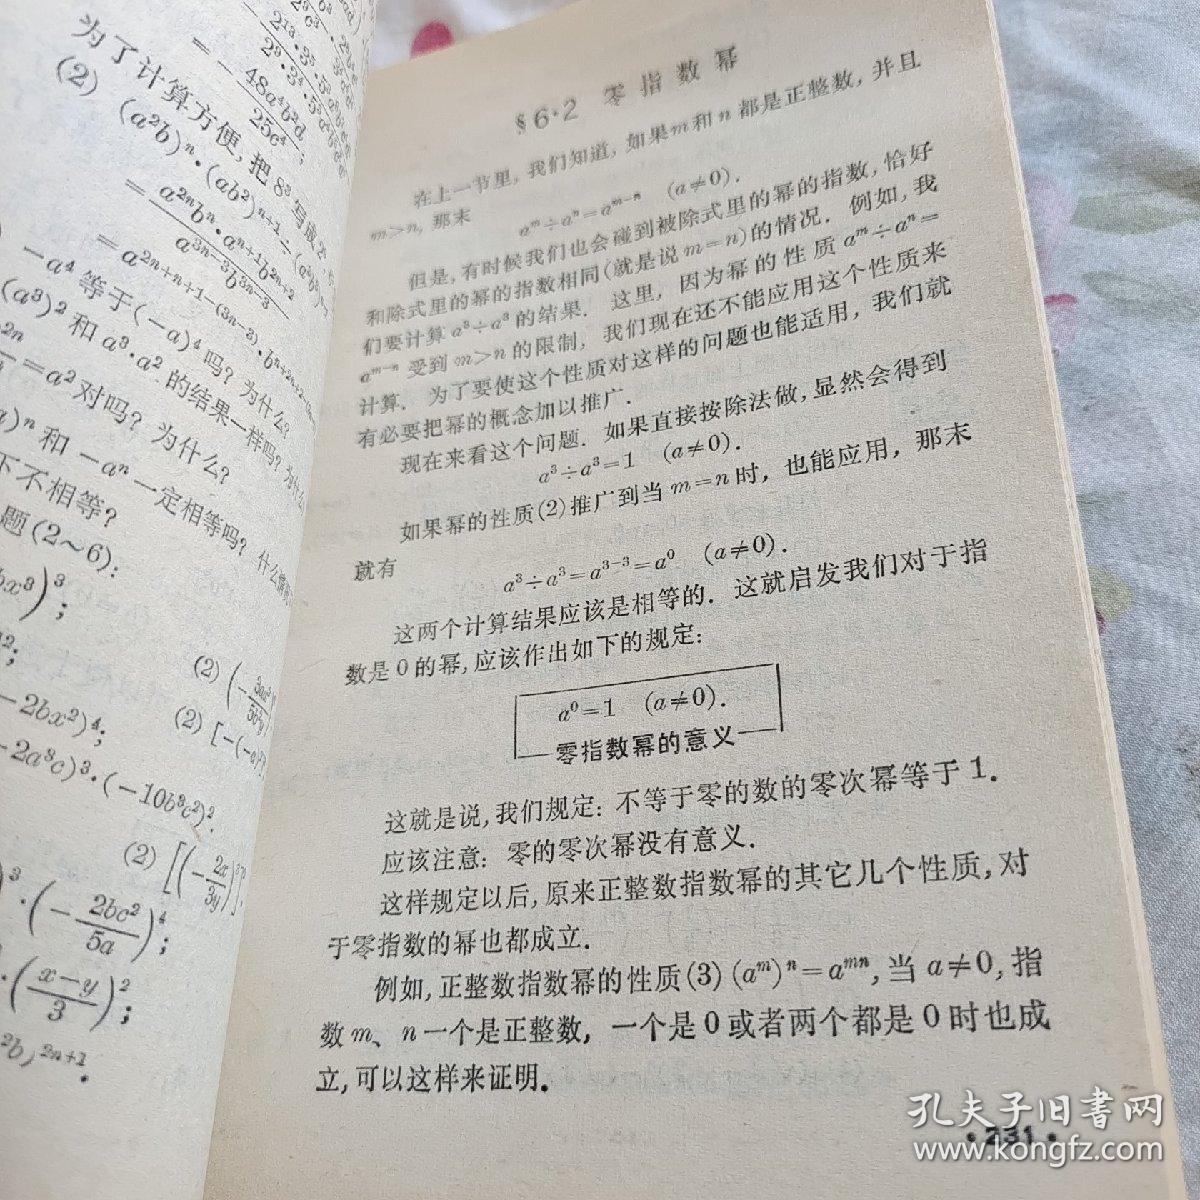 为了计算方便, 把 8³ 写成
(2) (a²b)ⁿ·(ab²)ⁿ⁺¹÷
-a⁴ 等于(-a)⁴ 吗? 为什么?
(a³)² 和 a³·a² 的结果一样吗? 为什么
=a² 对吗? 为什么?
)ⁿ 和 -aⁿ 一定相等吗? 什么
下不相等?
题(2～6):
bx³)³;
-2bx²)⁴;
-2a³c)³·(-10b³c²)².
(2) [(-2x/3y)
·(-2bc²/5a)⁴;
·(x-y/3)²;
²b)²ⁿ⁺¹.
§6·2 零指数幂
在上一节里, 我们知道, 如果 m 和 n 都是正整数, 并且
m>n, 那末
aᵐ÷aⁿ=aᵐ⁻ⁿ (a≠0).
但是, 有时候我们也会碰到被除式里的幂的指数, 恰好
和除式里的幂的指数相同(就是说 m=n)的情况. 例如, 我
们要计算 a³÷a³ 的结果. 这里, 因为幂的性质 aᵐ÷aⁿ=
aᵐ⁻ⁿ 受到 m>n 的限制, 我们现在还不能应用这个性质来
计算. 为了要使这个性质对这样的问题也能适用, 我们就
有必要把幂的概念加以推广.
现在来看这个问题. 如果直接按除法做, 显然会得到
a³÷a³=1 (a≠0).
如果幂的性质(2)推广到当 m=n 时, 也能应用, 那末
就有
a³÷a³=a³⁻³=a⁰ (a≠0).
这两个计算结果应该是相等的. 这就启发我们对于指
数是 0 的幂, 应该作出如下的规定:
a⁰=1 (a≠0).
零指数幂的意义
这就是说, 我们规定: 不等于零的数的零次幂等于 1.
应该注意: 零的零次幂没有意义.
这样规定以后, 原来正整数指数幂的其它几个性质, 对
于零指数的幂也都成立.
例如, 正整数指数幂的性质(3) (aᵐ)ⁿ=aᵐⁿ, 当 a≠0, 指
数 m、n 一个是正整数, 一个是 0 或者两个都是 0 时也成
立, 可以这样来证明.
·231·
孔夫子旧书网
www.kongfz.com